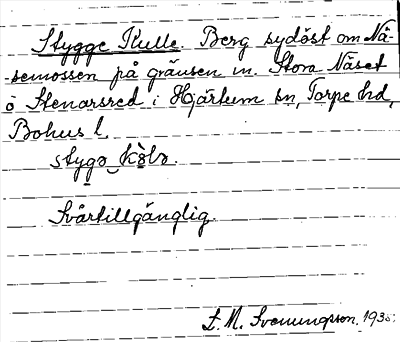 Stygge Kulle. Berg sydöst om Nä-
semossen på gränsen m. Stora Näset
o Stenarsred i Hjärtum sn, Torpe hd,
Bohus l.
stygə kɵlə.
Svårtillgänglig.
L. M. Svenungsson, 1935.